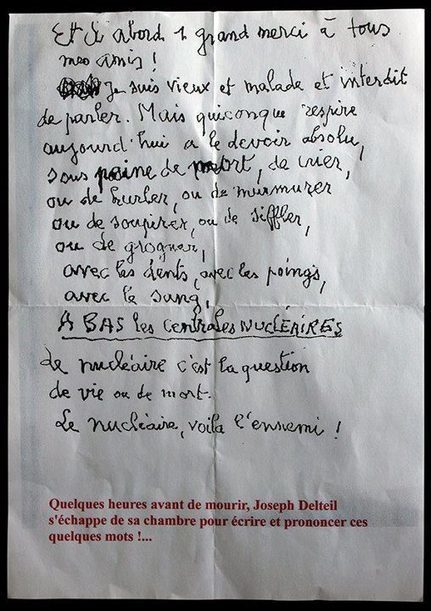 Et d'abord 1 grand merci à tous
mes amis !
Je suis vieux et malade et interdit
de parler. Mais quiconque respire
aujourd'hui a le devoir absolu,
sous peine de mort, de crier,
ou de hurler, ou de murmurer
ou de soupirer, ou de siffler,
ou de grogner,
avec les dents, avec les poings,
avec le sang,
A BAS les centrales NUCLÉAIRES
Le nucléaire c'est la question
de vie ou de mort.
Le nucléaire, voilà l'ennemi !
Quelques heures avant de mourir, Joseph Delteil
s'échappe de sa chambre pour écrire et prononcer ces
quelques mots !...